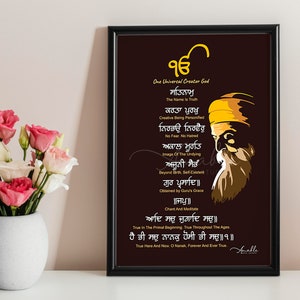 ੴ
One Universal Creator God
ਸਤਿਨਾਮੁ
The Name Is Truth
ਕਰਤਾ ਪੁਰਖੁ
Creative Being Personified
ਨਿਰਭਉ ਨਿਰਵੈਰੁ
No Fear No Hatred
ਅਕਾਲ ਮੂਰਤਿ
Image Of The Undying
ਅਜੂਨੀ ਸੈਭੰ
Beyond Birth, Self-Existent
ਗੁਰ ਪ੍ਰਸਾਦਿ॥
Obtained by Guru's Grace
॥ਜਪੁ॥
Chant And Meditate
ਆਦਿ ਸਚੁ ਜੁਗਾਦਿ ਸਚੁ॥
True in The Primal Beginning. True Throughout The Ages
ਹੈ ਭੀ ਸਚੁ ਨਾਨਕ ਹੋਸੀ ਭੀ ਸਚੁ॥੧॥
True Here And Now. O Nanak, Forever And Ever True.